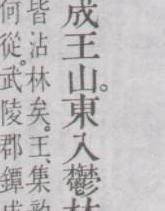 成王山。東入鬱林
皆沾林矣。王、集
何從。武陵郡鐔成